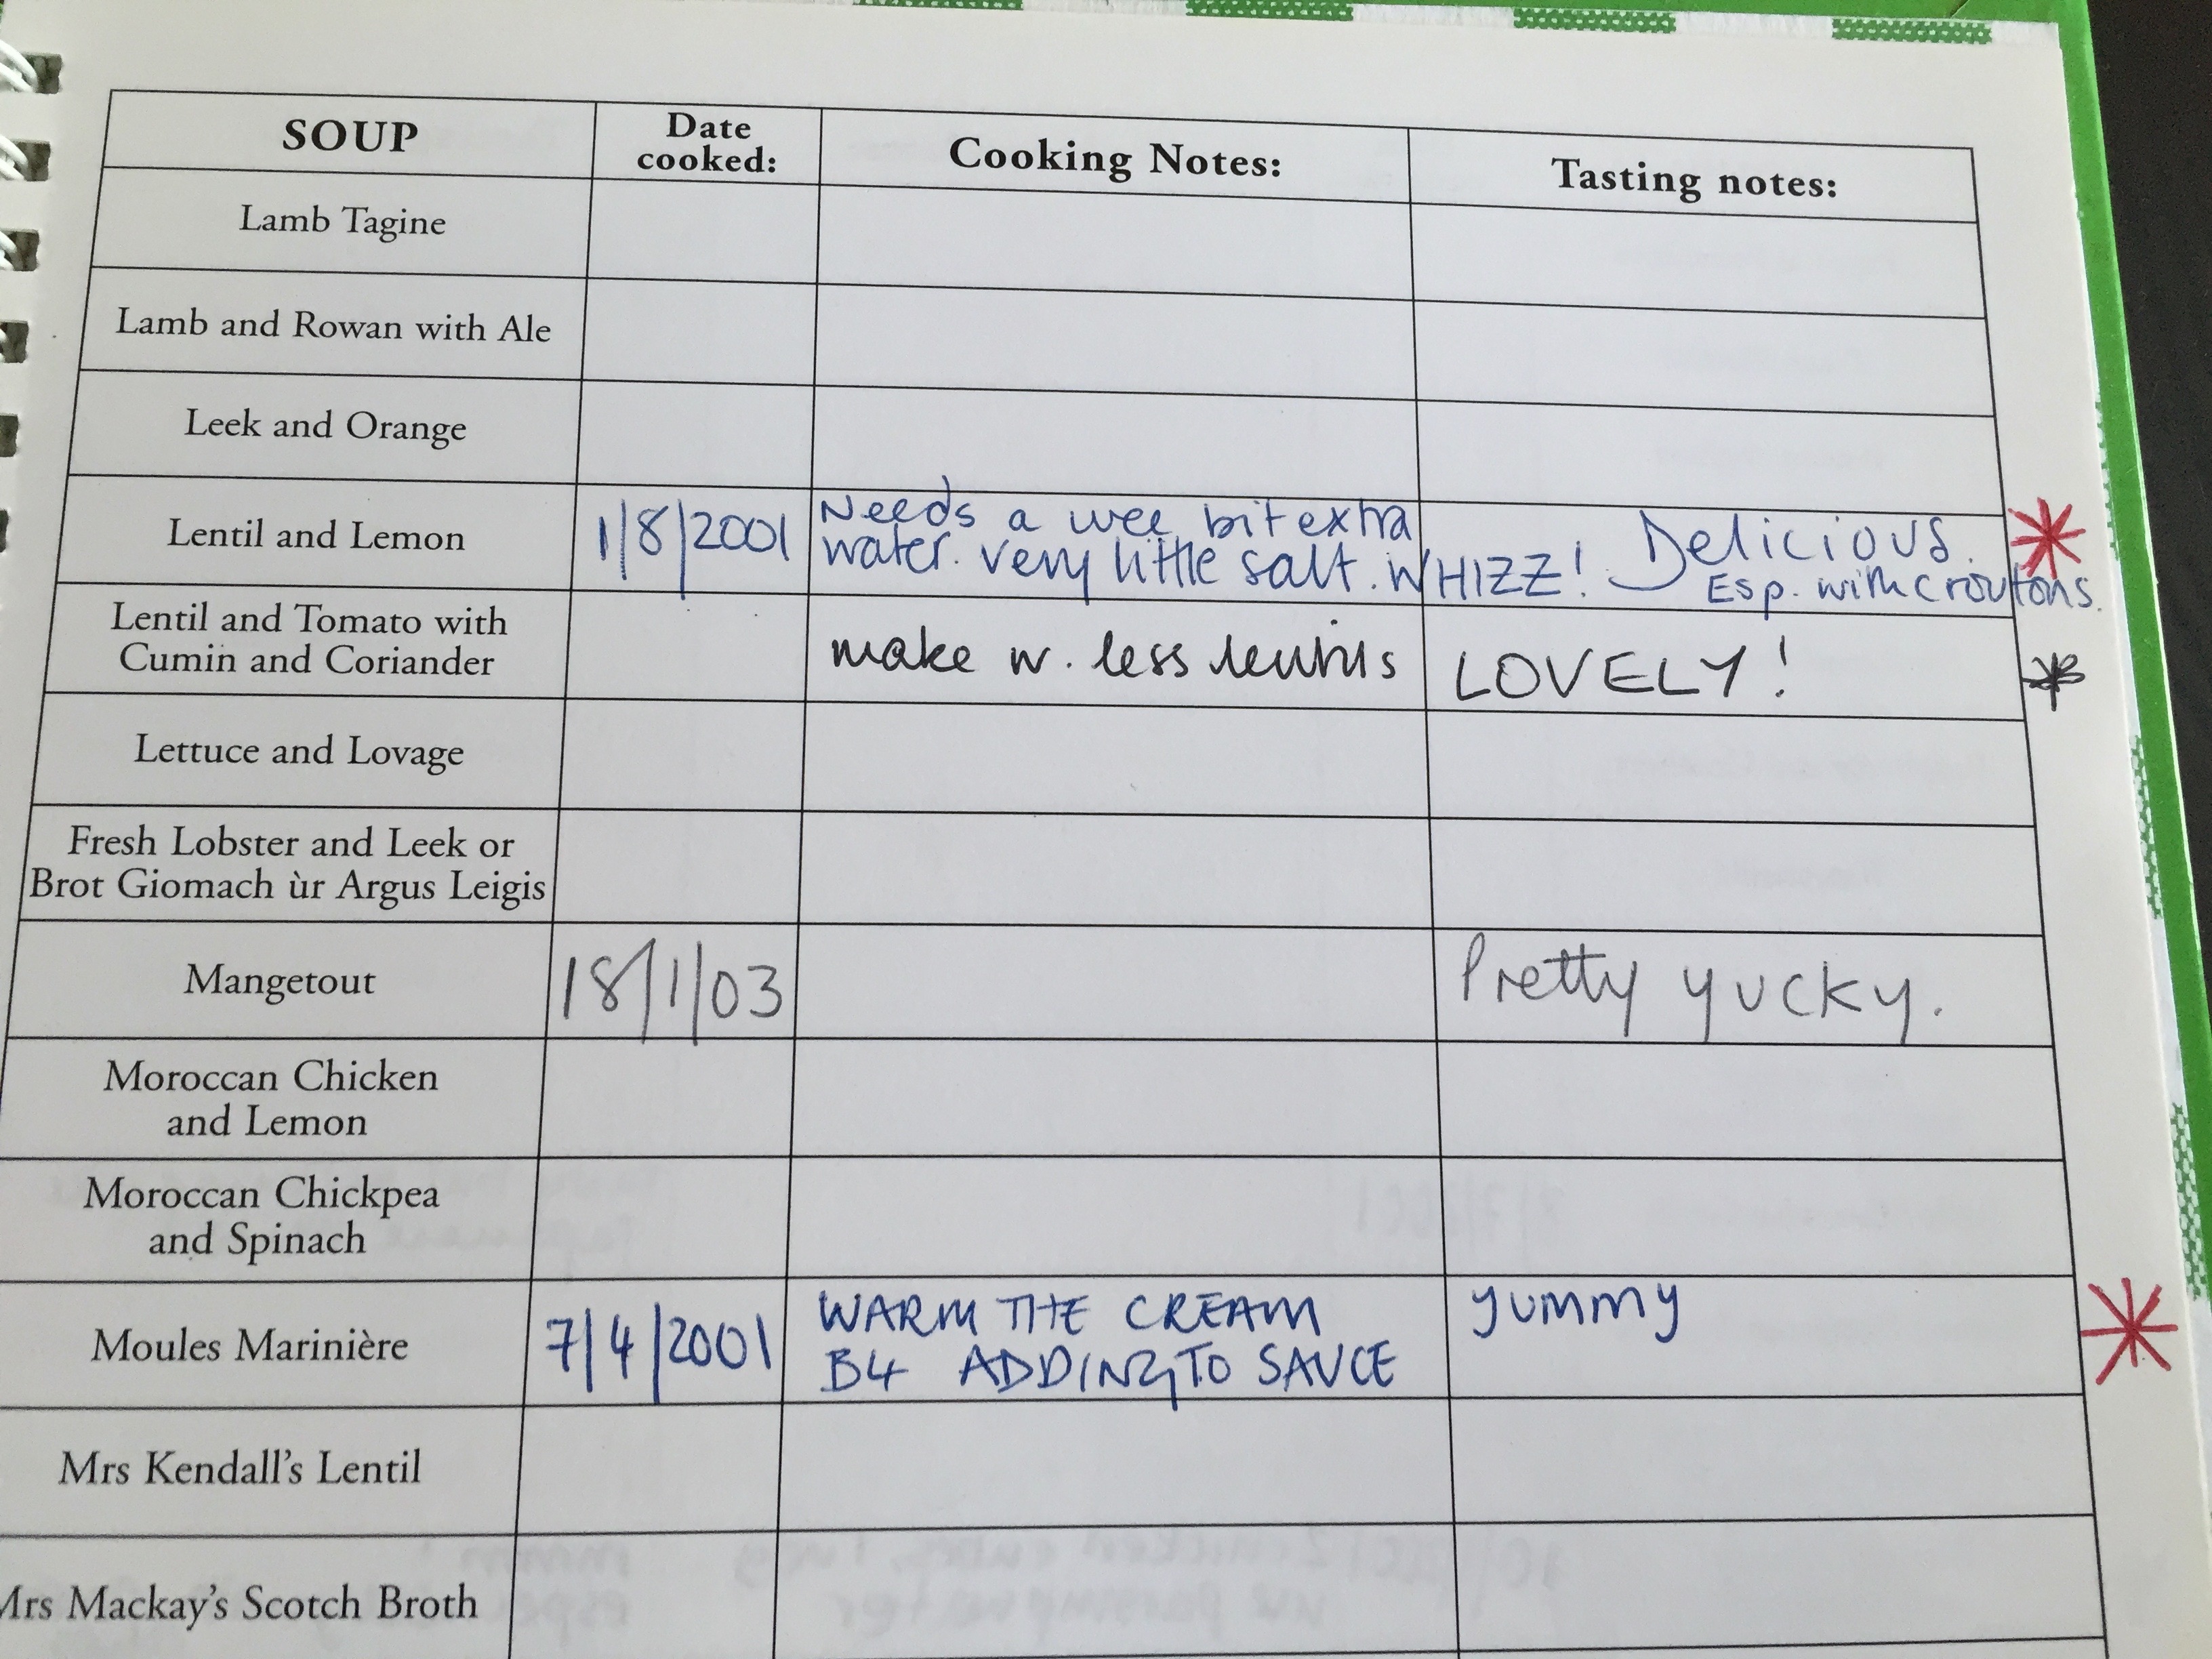 SOUP
Date
cooked:
Cooking Notes:
Tasting notes:
Lamb Tagine
Lamb and Rowan with Ale
Leek and Orange
Lentil and Lemon
1/8/2001
Needs a wee bit extra
water. very little salt. WHIZZ!
Delicious.
Esp. with croutons.
Lentil and Tomato with
Cumin and Coriander
make w. less lentils
LOVELY!
Lettuce and Lovage
Fresh Lobster and Leek or
Brot Giomach ùr Argus Leigis
Mangetout
18/1/03
Pretty yucky.
Moroccan Chicken
and Lemon
Moroccan Chickpea
and Spinach
Moules Marinière
7/4/2001
WARM THE CREAM
B4 ADDING TO SAUCE
yummy
Mrs Kendall's Lentil
Mrs Mackay's Scotch Broth